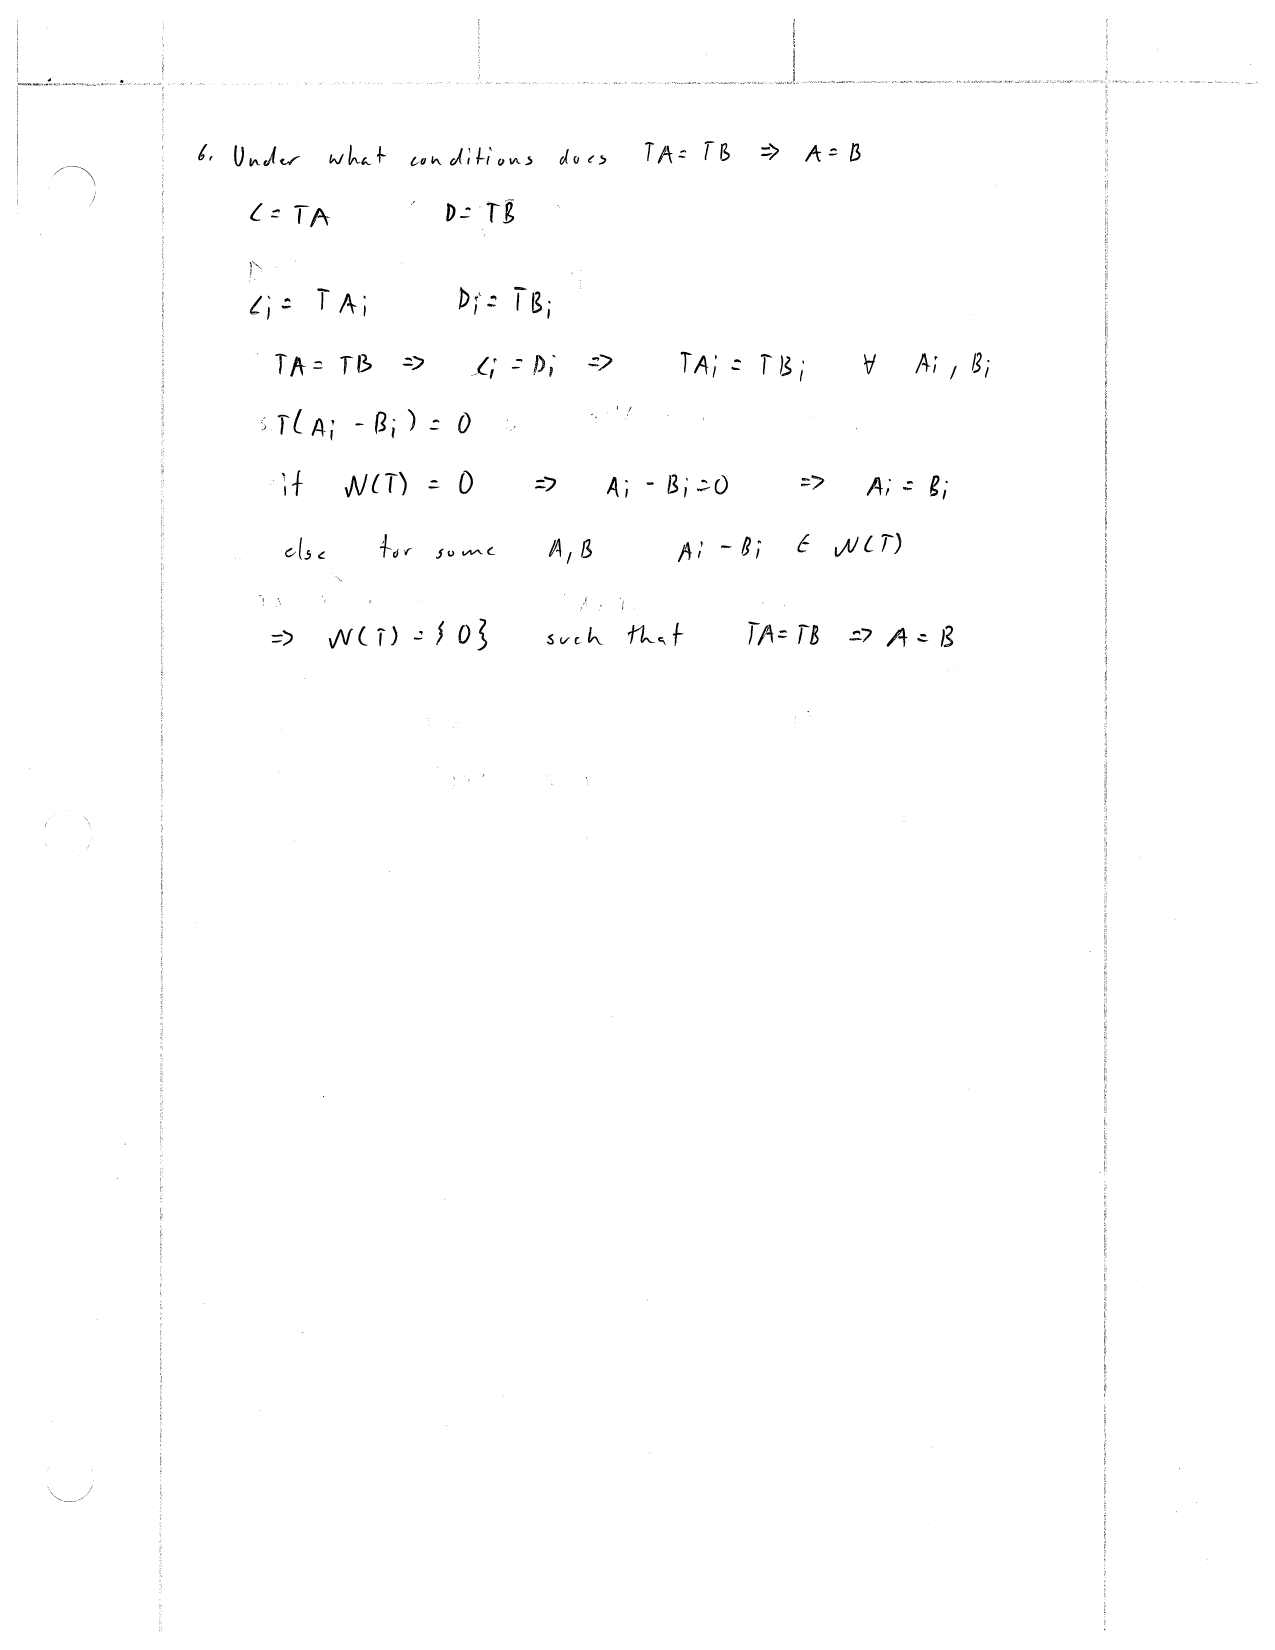 6. Under what conditions does TA = TB ⇒ A = B
C = TA D = TB
C_i = TA_i D_i = TB_i
TA = TB ⇒ C_i = D_i ⇒ TA_i = TB_i ∀ A_i, B_i
T(A_i - B_i) = 0
if N(T) = 0 ⇒ A_i - B_i = 0 ⇒ A_i = B_i
else for some A, B A_i - B_i ∈ N(T)
⇒ N(T) = {0} such that TA = TB ⇒ A = B